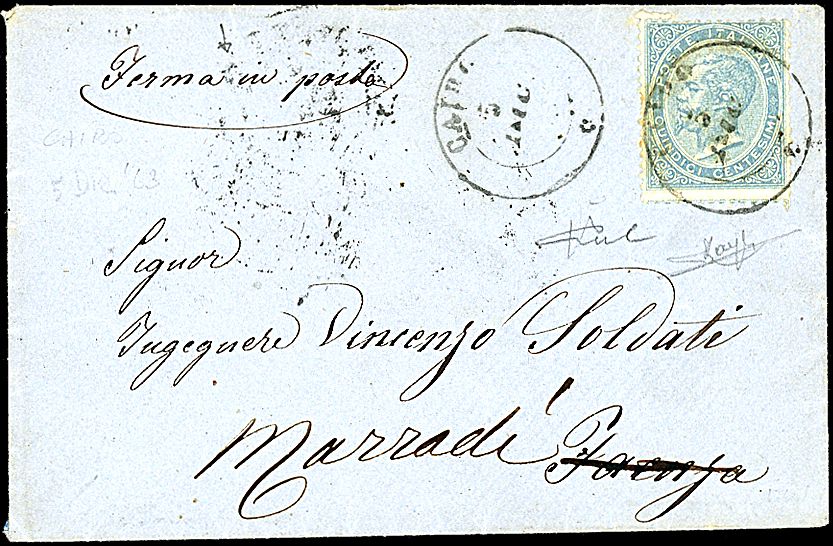 Ferma in posta
CAIRO
5
DIC
63
POSTE ITALIANE
QUINDICI CENTESIMI
CAIRO
5 DIC. '63
Signor
Ingegnere Vincenzo Soldati
Marradi Faenza